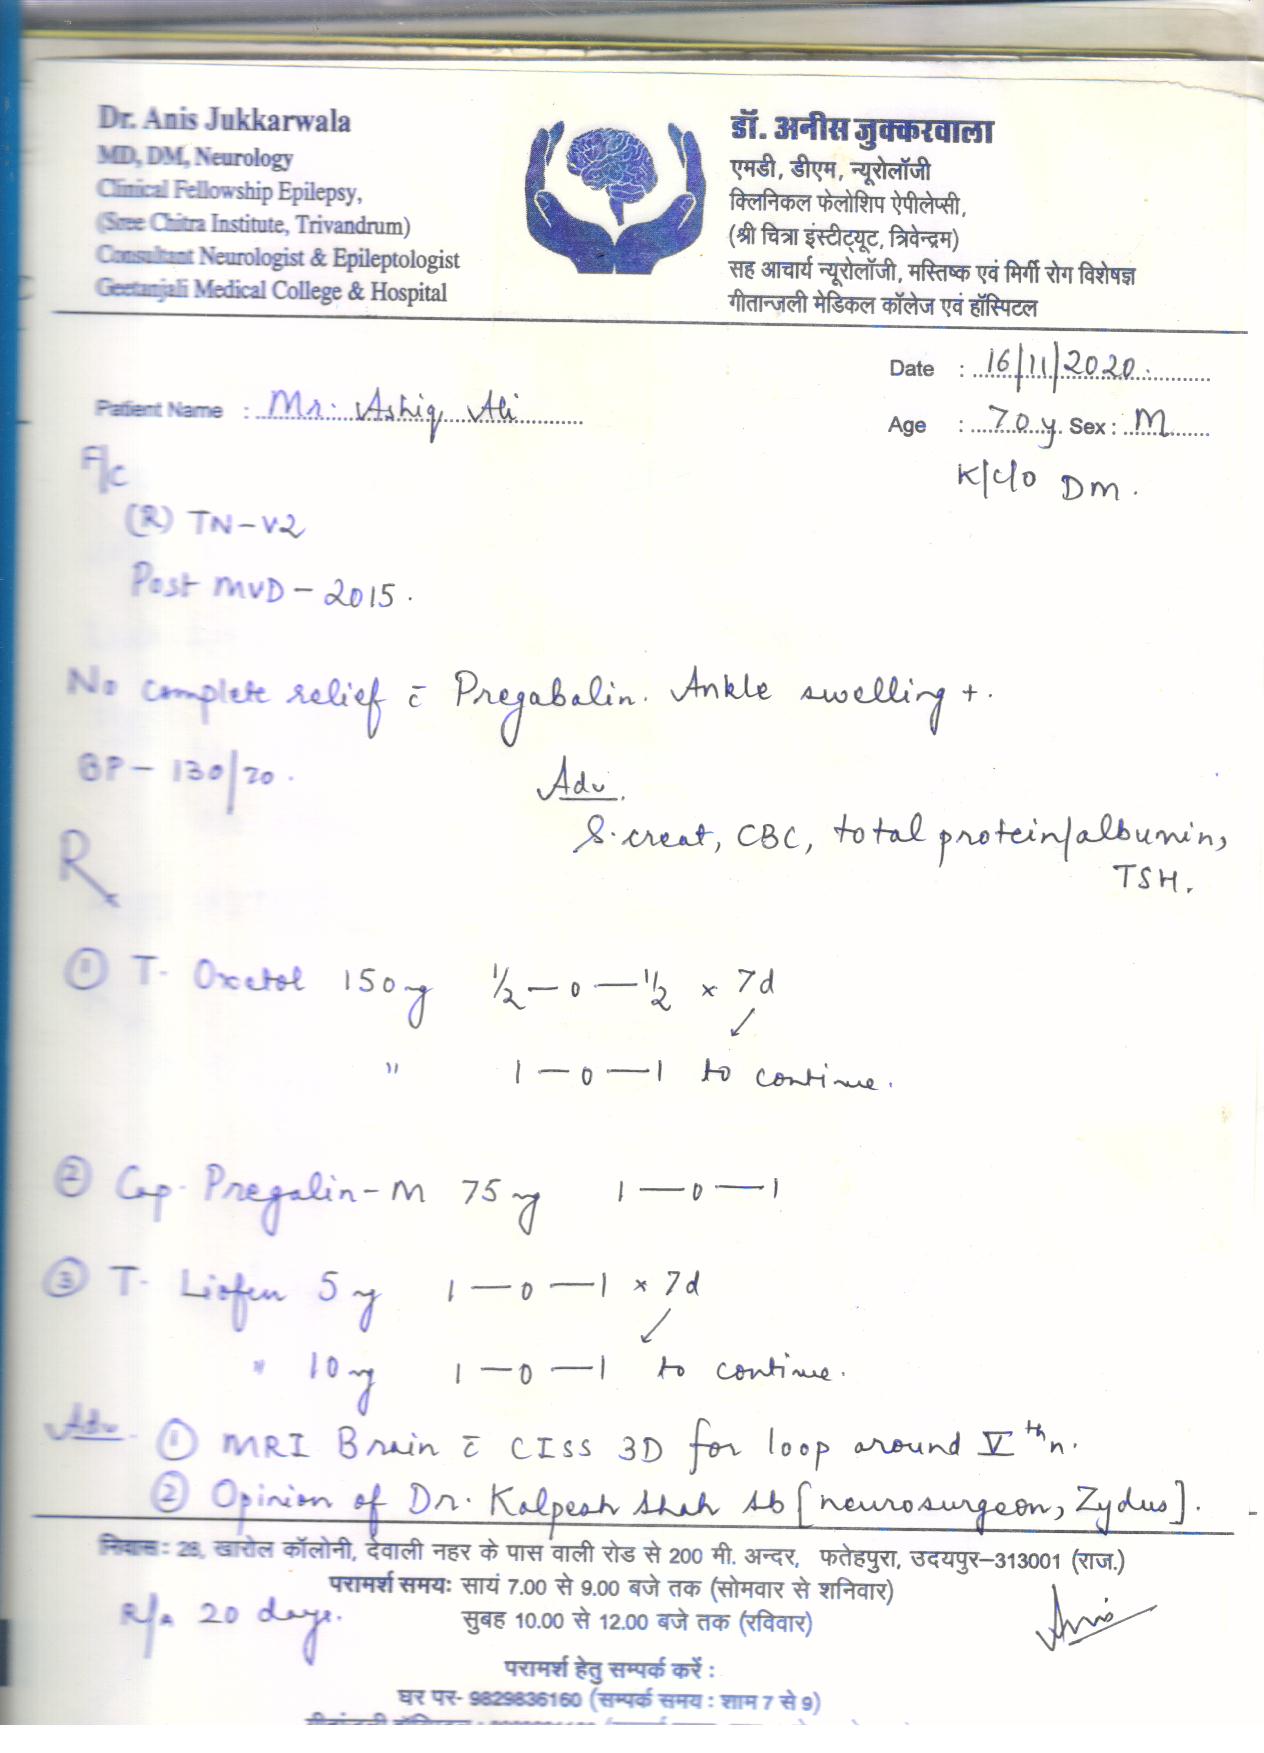 Dr. Anis Jukkarwala
MD, DM, Neurology
Clinical Fellowship Epilepsy,
(Sree Chitra Institute, Trivandrum)
Consultant Neurologist & Epileptologist
Geetanjali Medical College & Hospital
डॉ. अनीस जुक्करवाला
एमडी, डीएम, न्यूरोलॉजी
क्लिनिकल फेलोशिप ऐपीलेप्सी,
(श्री चित्रा इंस्टीट्यूट, त्रिवेन्द्रम)
सह आचार्य न्यूरोलॉजी, मस्तिष्क एवं मिर्गी रोग विशेषज्ञ
गीतान्जली मेडिकल कॉलेज एवं हॉस्पिटल
Date : 16/11/2020.
Patient Name : Mr. Ashiq Ali
Age : 70 y. Sex : M
K/c/o DM.
F/c
(R) TN-V2
Post MVD - 2015.
No complete relief c̄ Pregabalin. Ankle swelling +.
BP - 130/70.
Adv.
S. creat, CBC, total protein/albumin,
TSH.
Rx
① T. Oxetol 150 mg 1/2 — 0 — 1/2 × 7d
↙
" 1 — 0 — 1 to continue.
② Cap. Pregalin-M 75 mg 1 — 0 — 1
③ T. Liofen 5 mg 1 — 0 — 1 × 7d
↙
" 10 mg 1 — 0 — 1 to continue.
Adv. ① MRI Brain c̄ CISS 3D for loop around Vth n.
② Opinion of Dr. Kalpesh Shah sb [neurosurgeon, Zydus].
निवास: 28, खारोल कॉलोनी, देवाली नहर के पास वाली रोड से 200 मी. अन्दर, फतेहपुरा, उदयपुर–313001 (राज.)
परामर्श समय: सायं 7.00 से 9.00 बजे तक (सोमवार से शनिवार)
सुबह 10.00 से 12.00 बजे तक (रविवार)
R/a 20 days.
Anis
परामर्श हेतु सम्पर्क करें :
घर पर- 9829836160 (सम्पर्क समय : शाम 7 से 9)